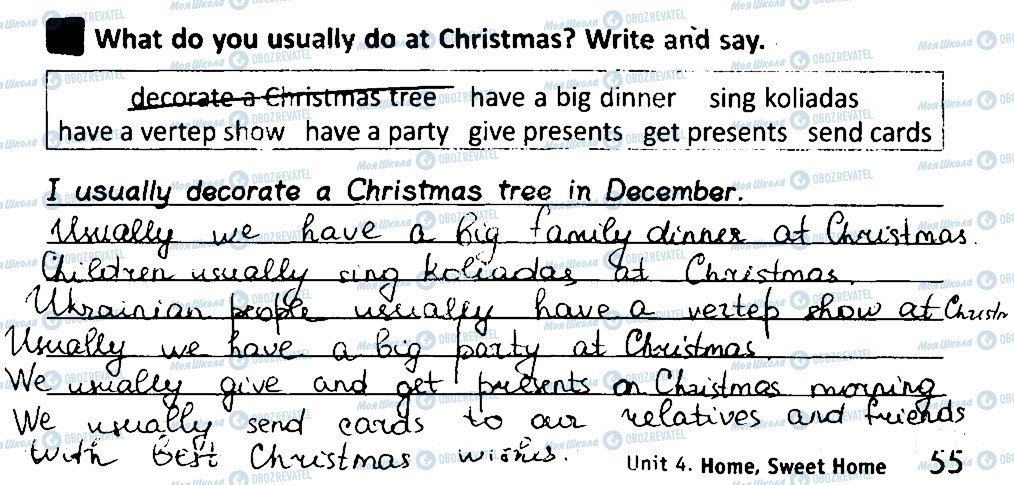 What do you usually do at Christmas? Write and say.
decorate a Christmas tree have a big dinner sing koliadas
have a vertep show have a party give presents get presents send cards
I usually decorate a Christmas tree in December.
Usually we have a big family dinner at Christmas.
Children usually sing koliadas at Christmas.
Ukrainian people usually have a vertep show at Christm
Usually we have a big party at Christmas.
We usually give and get presents on Christmas morning
We usually send cards to our relatives and friends
with Best Christmas wishes.
Unit 4. Home, Sweet Home 55